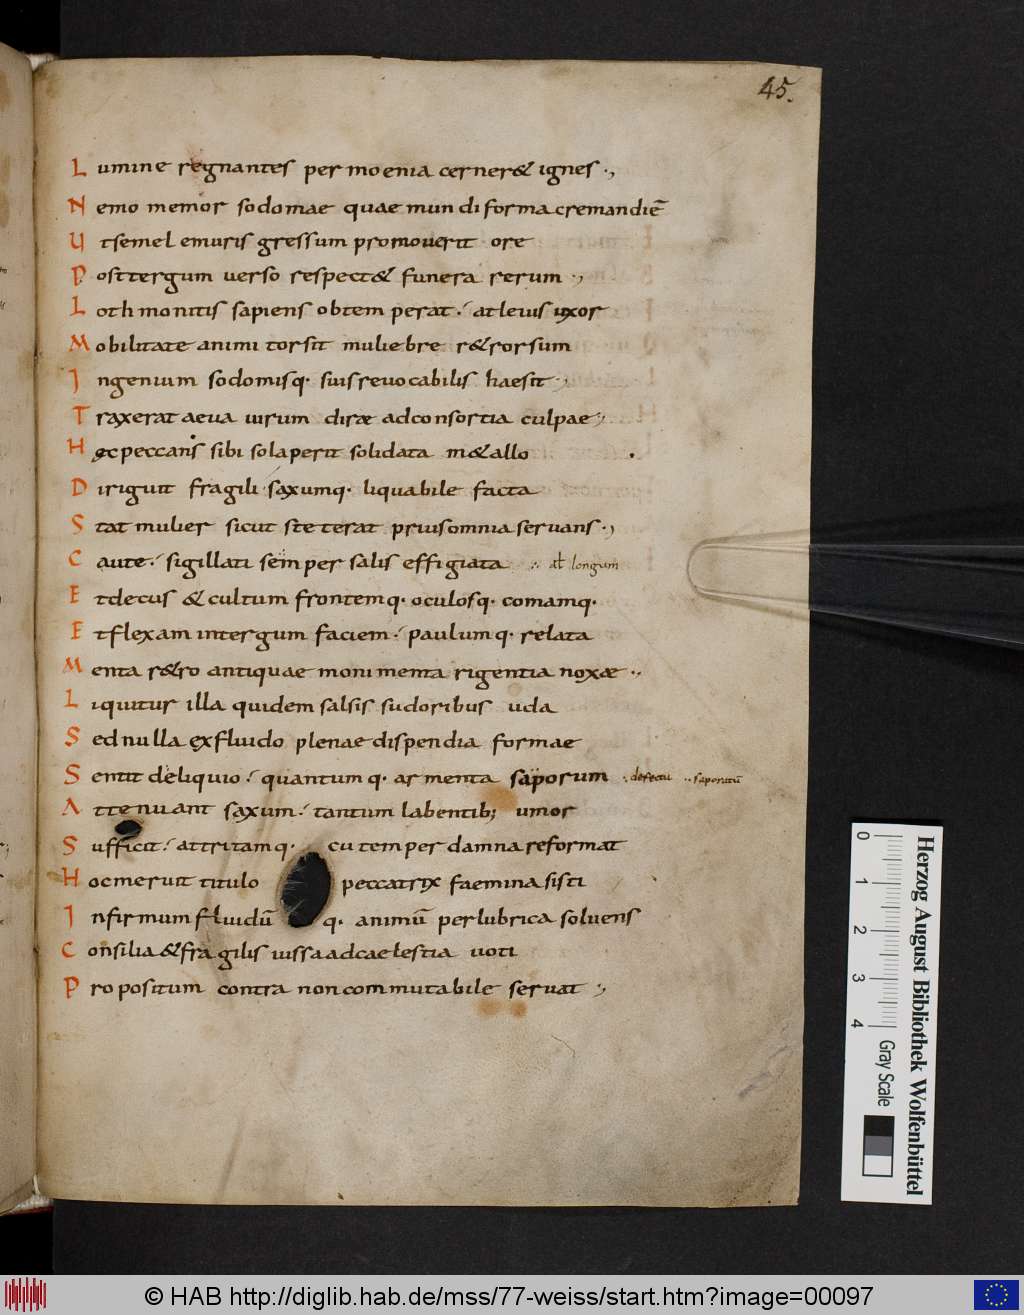 45.
Lumine regnantes per moenia cerner& ignes .,
Nemo memor sodomae quae mundi forma cremandiē
Ut semel e muris gressum promoverit ore
Post tergum verso respect& funera rerum .,
Loth monitis sapiens obtemperat ./ at levis uxor
Mobilitate animi torsit muliebre r&rorsum
Ingenium sodomisq. suis revocabilis haesit .,
Traxerat aeva virum diræ ad consortia culpae .,
Hęc peccans sibi sola perit solidata m&allo
Diriguit fragili saxumq. liquabile facta
Stat mulier sicut steterat prius omnia servans .,
Caute ./ sigillati semper salis effigiata ∴ at longum
Et decus & cultum frontemq. oculosq. comamq.
Et flexam in tergum faciem ./ paulumq. relata
Menta r&ro antiquae monimenta rigentia noxæ ..
Liquitur illa quidem salsis sudoribus uda
Sed nulla ex fluido plenae dispendia formae
Sentit deliquio ./ quantumq. armenta saporum defectu saporatū
Attenuant saxum ./ tantum labentib; umor
Sufficit ./ attritamq. cutem per damna reformat
Hoc meruit titulo peccatrix faemina sisti
Infirmum fluidū q. animū per lubrica solvens
Consilia & fragilis iussa ad caelestia voti
Propositum contra non commutabile servat .,
0 1 2 3 4
Gray Scale
Herzog August Bibliothek Wolfenbüttel
© HAB http://diglib.hab.de/mss/77-weiss/start.htm?image=00097